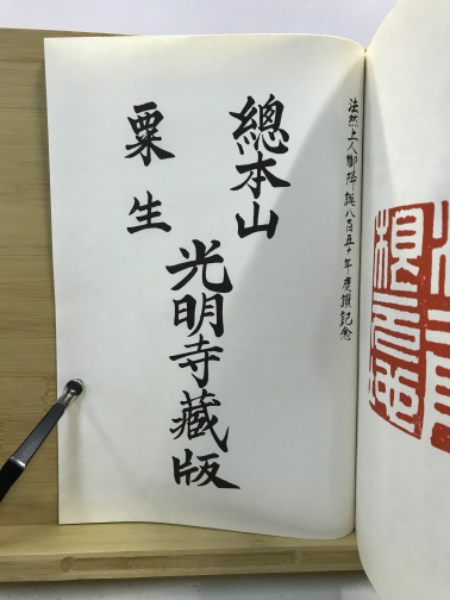 法然上人御降誕八百五十年慶讃記念
總本山
粟生
光明寺藏版